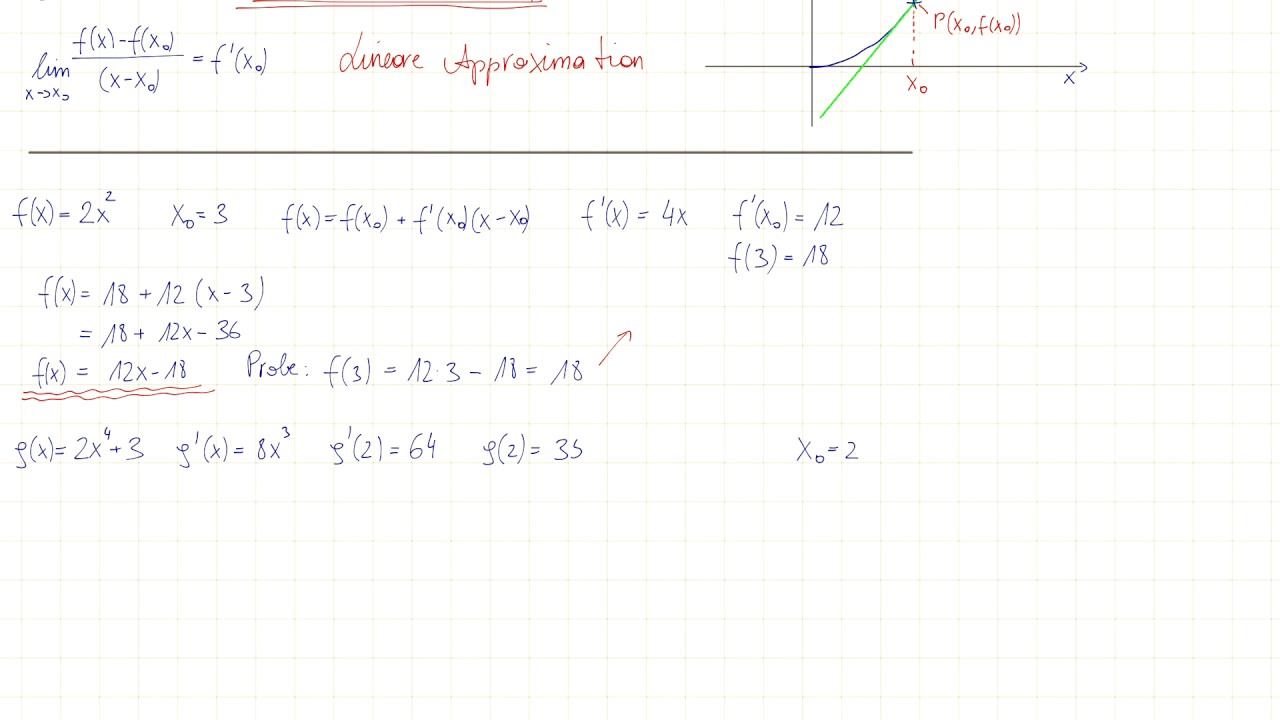 lim x→x₀ (f(x)-f(x₀))/(x-x₀) = f'(x₀) Lineare Approximation
P(x₀,f(x₀))
x₀
x
f(x)=2x² x₀=3 f(x)=f(x₀)+f'(x₀)(x-x₀) f'(x)=4x f'(x₀)=12
f(3)=18
f(x)=18+12(x-3)
=18+12x-36
f(x)=12x-18 Probe: f(3)=12·3-18=18
g(x)=2x⁴+3 g'(x)=8x³ g'(2)=64 g(2)=35 x₀=2